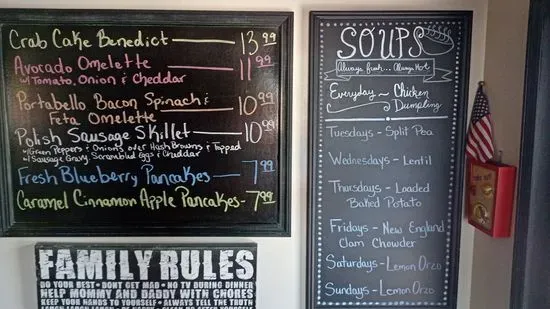 Crab Cake Benedict — 13.99
Avocado Omelette — 11.99
w/Tomato, Onion & Cheddar
Portabello Bacon Spinach & — 10.99
Feta Omelette
Polish Sausage Skillet — 10.99
w/Green Peppers & Onions over Hash Browns & Topped
w/Sausage Gravy, Scrambled Eggs & Cheddar
Fresh Blueberry Pancakes — 7.99
Caramel Cinnamon Apple Pancakes - 7.99
FAMILY RULES
DO YOUR BEST • DONT GET MAD • NO TV DURING DINNER
HELP MOMMY AND DADDY WITH CHORES
KEEP YOUR HANDS TO YOURSELF • ALWAYS TELL THE TRUTH
SOUPS
Always fresh... Always Hot
Everyday ~ Chicken
Dumpling
Tuesdays - Split Pea
Wednesdays - Lentil
Thursdays - Loaded
Baked Potato
Fridays - New England
Clam Chowder
Saturdays - Lemon Orzo
Sundays - Lemon Orzo